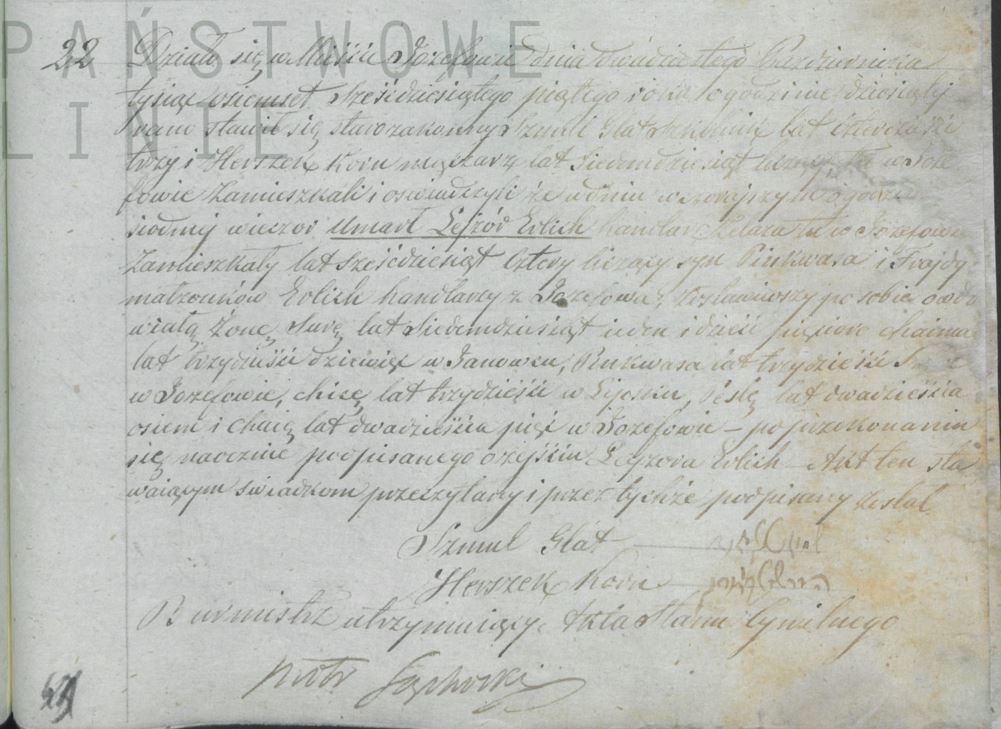 PAŃSTWOWE
LINIE
22 Działo się w Mieście Józefowie dnia dwudziestego Października
tysiąc osiemset sześdziesiątego piątego roku o godzinie dziesiąty
rano stawił się starozakonny Szmul Glat Szkolnik lat czterdzieści
trzy i Herszek Korn lat siedemdziesiąt liczący, tu w Józe
fowie zamieszkali i oświadczyli że w dniu wczorajszym o godzinie
siodmej wieczor umarł Lejzór Erlich handlarz żelaza tu w Józefowie
zamieszkały lat sześdziesiąt cztery liczący syn Pinkwasa i Frajdy
małżonków Erlich handlarzy z Józefowa; zostawiwszy po sobie owdo
wiałą żonę Surę lat siedemdziesiąt ieden i dzieci pięcioro Chaima
lat trzydzieści dziewięć w Janowcu, Pinkwasa lat trzydzieści
w Józefowie, lat trzydzieści w, lat dwadzieścia
osiem i Chaię lat dwadzieścia pięć w Józefowie – po przekonaniu
się naocznie podpisanego o zejściu Lejzora Erlich – Akt ten sta
wającym świadkom przeczytany i przez tychże podpisany został
Szmul Glat —
Herszek Korn —
Burmistrz utrzymujący Akta Stanu Cywilnego
Piotr